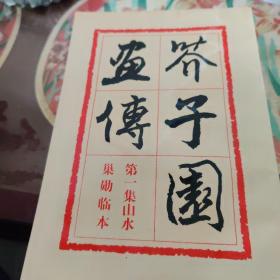 芥子園
画傳
第一集山水
巢勋临本